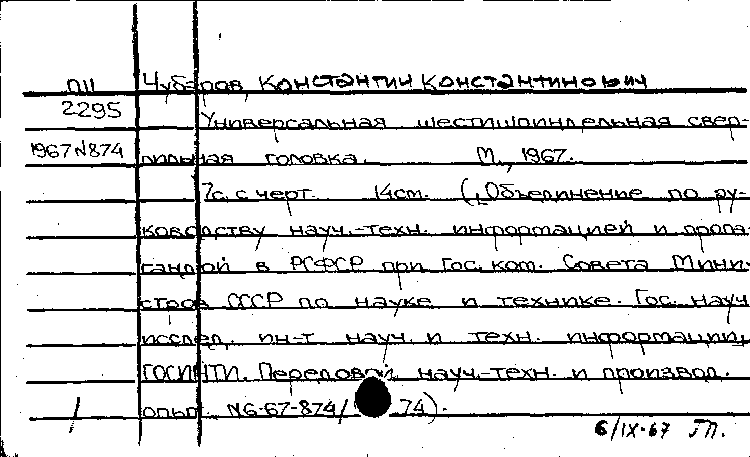 ПН Чубаров, Константин Константинович
2295 Универсальная шестишпиндельная свер-
1967 N874 лильная головка. М., 1967.
7с. с черт. 14см. („Объединение по ру-
ководству науч.-техн. информацией и пропа-
гандой в РСФСР при Гос. ком. Совета Мини-
стров СССР по науке и технике. Гос. науч.
исслед. ин-т науч. и техн. информации,
ГОСИНТИ. Передовой науч.-техн. и производ.
опыт. N6-67-874/ 74).
6/IX-67 ГП.